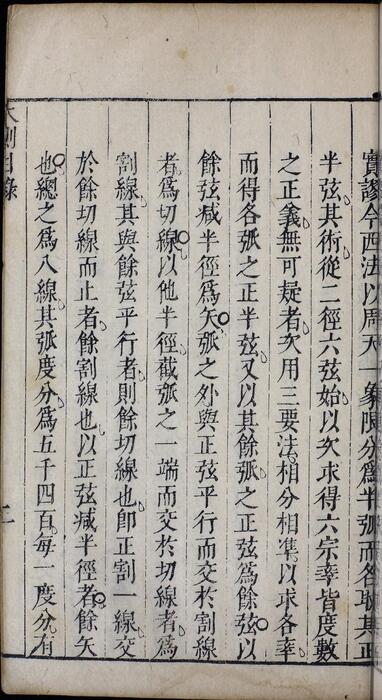 實謬今西法以周天一象限分爲半弧而各取其正
半弦其術從二徑六弦始以次求得六宗率皆度數
之正義無可疑者次用三要法相分相準以求各率
而得各弧之正半弦又以其餘弧之正弦爲餘弦以
餘弦減半徑爲矢弧之外與正弦平行而交於割線
者爲切線以他半徑截弧之一端而交於切線者爲
割線其與餘弦平行者則餘切線也卽正割一線交
於餘切線而止者餘割線也以正弦減半徑者餘矢
也總之爲八線其弧度分爲五千四百每一度分有
大測目錄
二